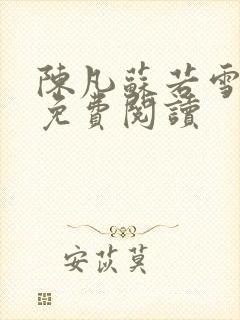 陳凡蘇若雪
免費閱讀
安苡莫